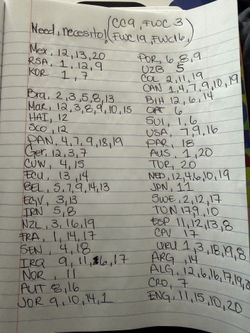 Need, necesito! (CC9, FWC 3
FWC19, FWC16,)
Mex, 12, 13, 20
RSA, 1, 12, 9
KOR 1, 7
Bra, 2, 3, 5, 8, 13
Mar, 12, 3, 8, 9, 10, 15
HAI, 12
Sco, 12
PAN, 4, 7, 9, 18, 19
Ger, 12, 3, 7
CUW, 4, 15
ECU, 13, 14
BEL, 5, 7, 9, 14, 13
EGY, 3, 13
IRN, 5, 8
NZL, 3, 16, 19
FRA, 1, 14, 17
SEN, 4, 18
IRQ, 9, 11, 16, 17
NOR, 11
AUT 8, 16
JOR 9, 10, 14, 1
POR, 6, 8, 9
UZB 5
COL 2, 11, 19
CAN 1, 4, 7, 9, 10, 19
BIH 12, 6, 14
QAT 6
SUI, 1, 6
USA, 7, 9, 16
PAR, 18
AUS, 1, 20
TUR, 20
NED, 12, 4, 6, 10, 19
JPN, 11
SWE, 2, 12, 17
TUN 17, 9, 10
ESP 11, 12, 13, 8
CPV 17
URU 1, 3, 18, 19, 8
ARG, 14
ALG, 12, 6, 16, 17, 19
CRO, 7
ENG, 11, 15, 10, 20